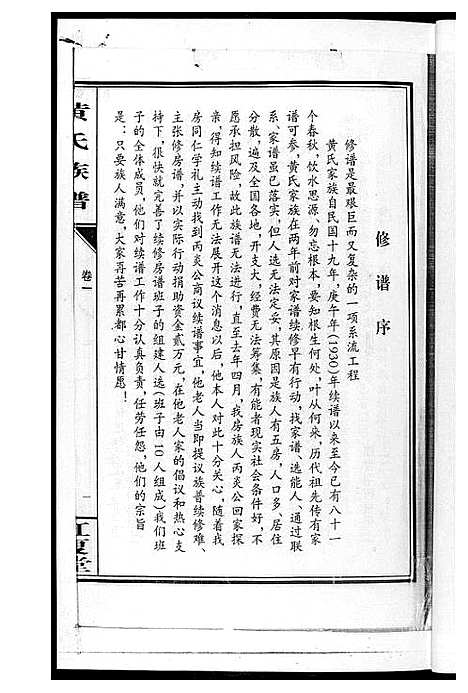 修谱序
修谱是最艰巨而又复杂的一项系流工程
黄氏家族自民国十九年，庚午年(1930)年续谱以来至今已有八十一
个春秋，饮水思源、勿忘根本，要知根生何处，叶从何来，历代祖先传有家
谱可参，黄氏家族在两年前对家谱续修早有行动，找家谱、选能人、通过联
系、家谱虽已落实，但人选无法定妥，其原因是族人有五房，人口多、居住
分散，遍及全国各地，开支大，经费无法筹集，有能者现实社会条件好，不
愿承担风险，故此族谱无法进行，直至去年四月，我房族人丙炎公回家探
亲，得知续谱工作无法展开这个消息以后，他本人对此十分关心，随着我
房同仁学礼主动找到丙炎公商议续谱事宜，他老人当即提议族普续修难、
主张修房谱，并以实际行动捐助资金贰万元，在他老人家的倡议和热心支
持下，很快就完善了续修房谱班子的组建人选(班子由10人组成)我们班
子的全体成员，他们对续谱工作十分认真负责，任劳任怨，他们的宗旨
是：只要族人满意，大家再苦再累都心甘情愿！
黄氏族谱
卷一
一
江夏堂